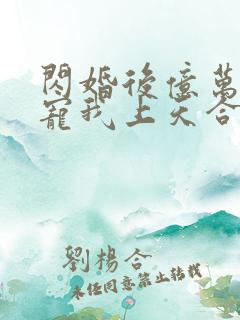 閃婚後億萬
寵我上天合
劉楊合
未經同意禁止轉載